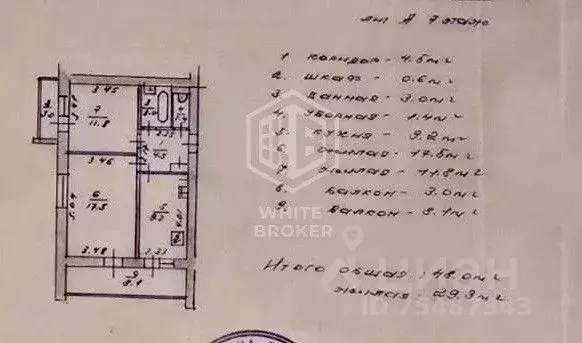 лит А 7 этаж
1 коридор - 4.5 м²
2. шкаф - 0.6 м²
3 ванная - 3.0 м²
4. уборная - 1.4 м²
5 кухня - 9.2 м²
6 жилая - 17.5 м²
7 жилая - 11.8 м²
8 балкон - 3.0 м²
9. балкон - 8.1 м²
Итого общая: 48.0 м²
жилая: 29.3 м²
3.45
7
11.8
3.46
6
17.5
5.04
3.48
2.33
4.01
9
8.1
WHITE
BROKER
ЦИАН
ID 75487343